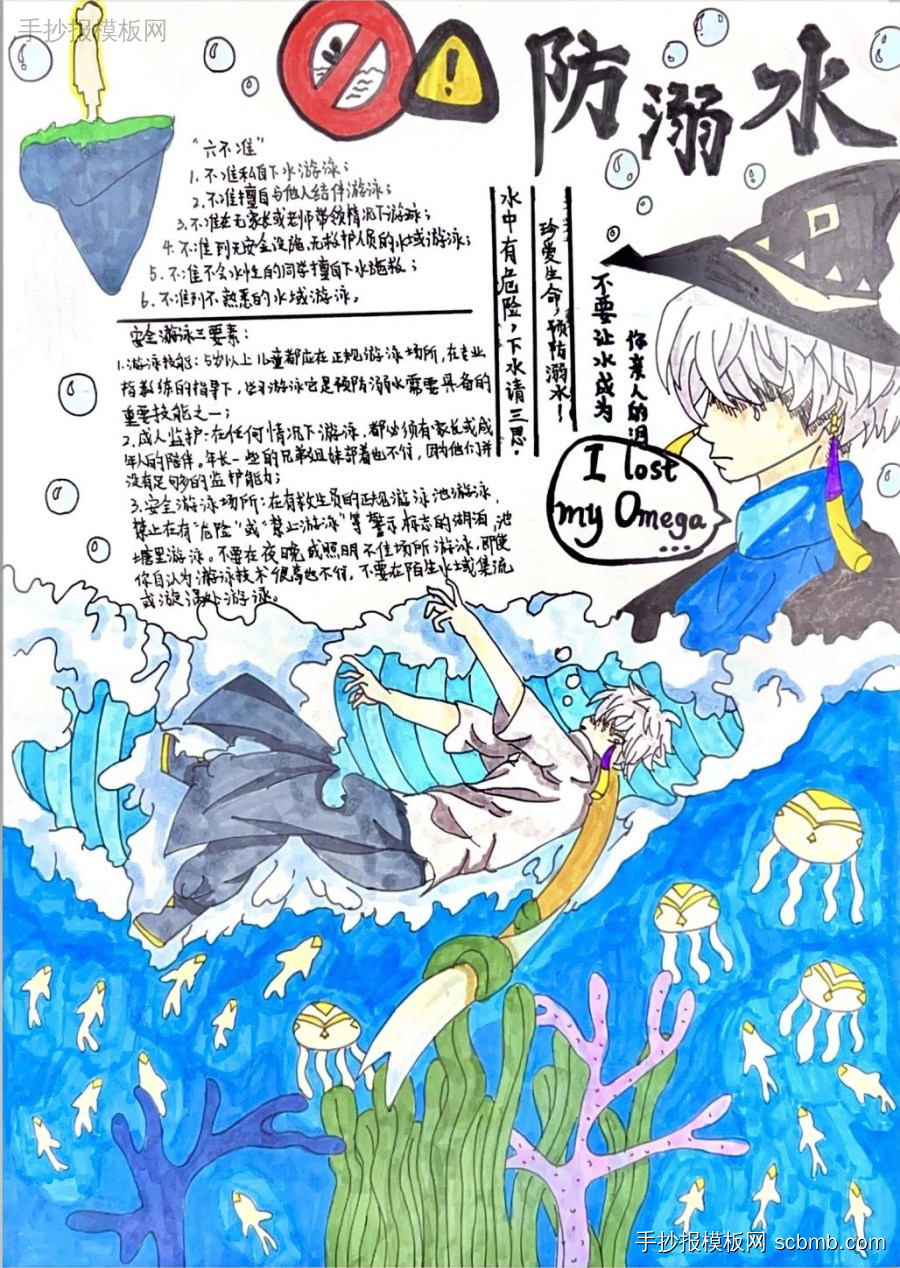 手抄报模板网
防溺水
"六不准"
1. 不准私自下水游泳；
2. 不准擅自与他人结伴游泳；
3. 不准在无家长或老师带领情况下游泳；
4. 不准到无安全设施、无救护人员的水域游泳；
5. 不准不会水性的同学擅自下水施救；
6. 不准到不熟悉的水域游泳。
安全游泳三要素：
1.游泳技能：5岁以上儿童都应在正规游泳场所，在专业
指教练的指导下，学习游泳它是预防溺水需要具备的
重要技能之一；
2.成人监护：在任何情况下游泳，都必须有家长或成
年人的陪伴。年长一些的兄弟姐妹部着也不行，因为他们并
没有足够的监护能力；
3.安全游泳场所：在有救生员的正规游泳池游泳，
禁止在有"危险"或"禁止游泳"等警示标志的湖泊，池
塘里游泳。不要在夜晚或照明不佳场所游泳，即使
你自认为游泳技术很高也不行，不要在陌生水域集流
或漩涡处游泳。
水中有危险，下水请三思．
珍爱生命，预防溺水！
不要让水成为
你亲人的泪
I lost
my Omega
...
手抄报模板网 scbmb.com